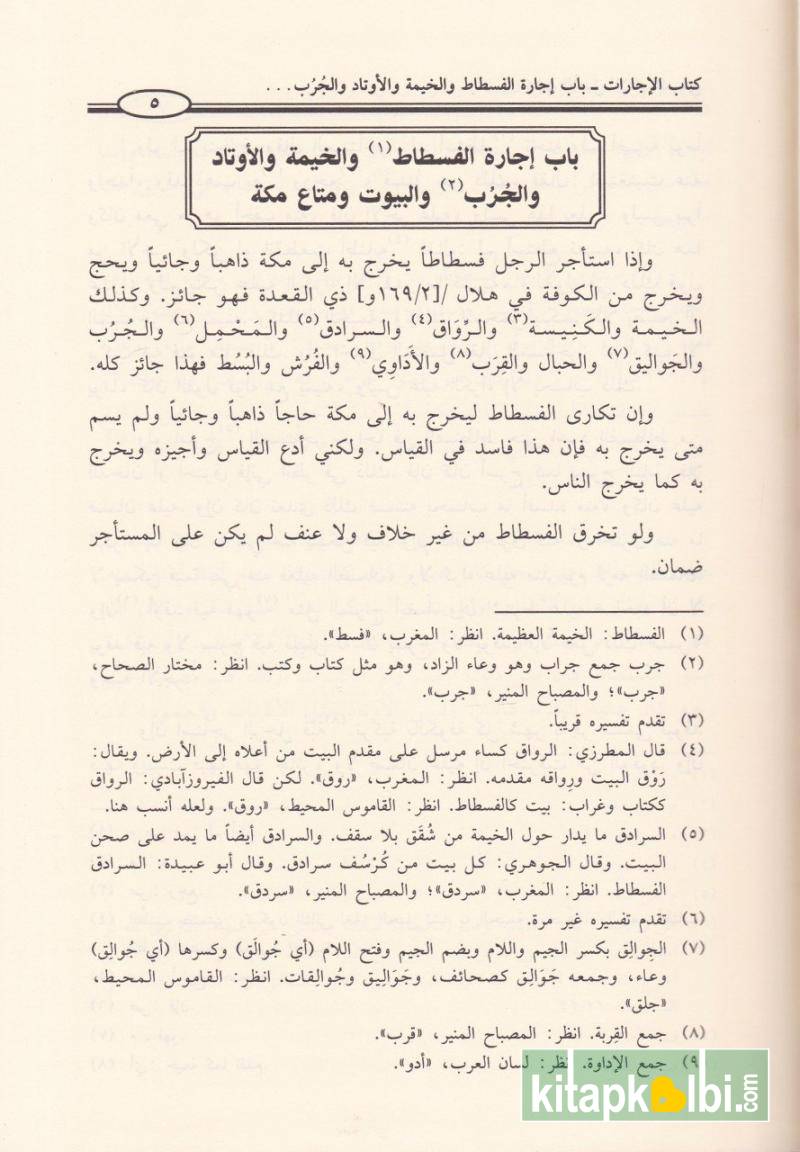 كتاب الإجارات ـ باب إجارة الفسطاط والخيمة والأوتاد والجُرُب . . .
٥
باب إجارة الفسطاط(١) والخيمة والأوتاد
والجُرُب(٢) والبيوت ومتاع مكة
وإذا استأجر الرجل فسطاطاً يخرج به إلى مكة ذاهباً وجائياً ويحج
ويخرج من الكوفة في هلال /[١٦٩/٢و] ذي القعدة فهو جائز. وكذلك
الخيمة والكَنِيسة(٣) والرِّوَاق(٤) والسرادق(٥) والمَحْمِل(٦) والجُرُب
والجَواليق(٧) والحبال والقِرَب(٨) والأَدَاوِي(٩) والفُرُش والبُسُط فهذا جائز كله.
وإن تكارى الفسطاط ليخرج به إلى مكة حاجاً ذاهباً وجائياً ولم يسم
متى يخرج به فإن هذا فاسد في القياس. ولكني أدع القياس وأجيزه ويخرج
به كما يخرج الناس.
ولو تخرق الفسطاط من غير خلاف ولا عنف لم يكن على المستأجر
ضمان.
(١) الفسطاط: الخيمة العظيمة. انظر: المغرب، «فسط».
(٢) جرب جمع جراب وهو وعاء الزاد، وهو مثل كتاب وكتب. انظر: مختار الصحاح،
«جرب»؛ والمصباح المنير، «جرب».
(٣) تقدم تفسيره قريباً.
(٤) قال المطرزي: الرواق كساء مرسل على مقدم البيت من أعلاه إلى الأرض. ويقال:
رَوْق البيت ورِواقه مقدمه. انظر: المغرب، «روق». لكن قال الفيروزآبادي: الرواق
ككتاب وغراب: بيت كالفسطاط. انظر: القاموس المحيط، «روق». ولعله أنسب هنا.
(٥) السرادق ما يدار حول الخيمة من شُقَق بلا سقف. والسرادق أيضاً ما يمد على صحن
البيت. وقال الجوهري: كل بيت من كُرْسُف سرادق. وقال أبو عبيدة: السرادق
الفسطاط. انظر: المغرب، «سردق»؛ والمصباح المنير، «سردق».
(٦) تقدم تفسيره غير مرة.
(٧) الجِوالِق بكسر الجيم واللام وبضم الجيم وفتح اللام (أي جُوالَق) وكسرها (أي جُوالِق)
وعاء، وجمعه جَوَالِق كصحائف، وجَوَالِيق وجُوالِقات. انظر: القاموس المحيط،
«جلق».
(٨) جمع القِربة. انظر: المصباح المنير، «قرب».
(٩) جمع الإداوة. انظر: لسان العرب، «أدو».
kitapkalbi.com